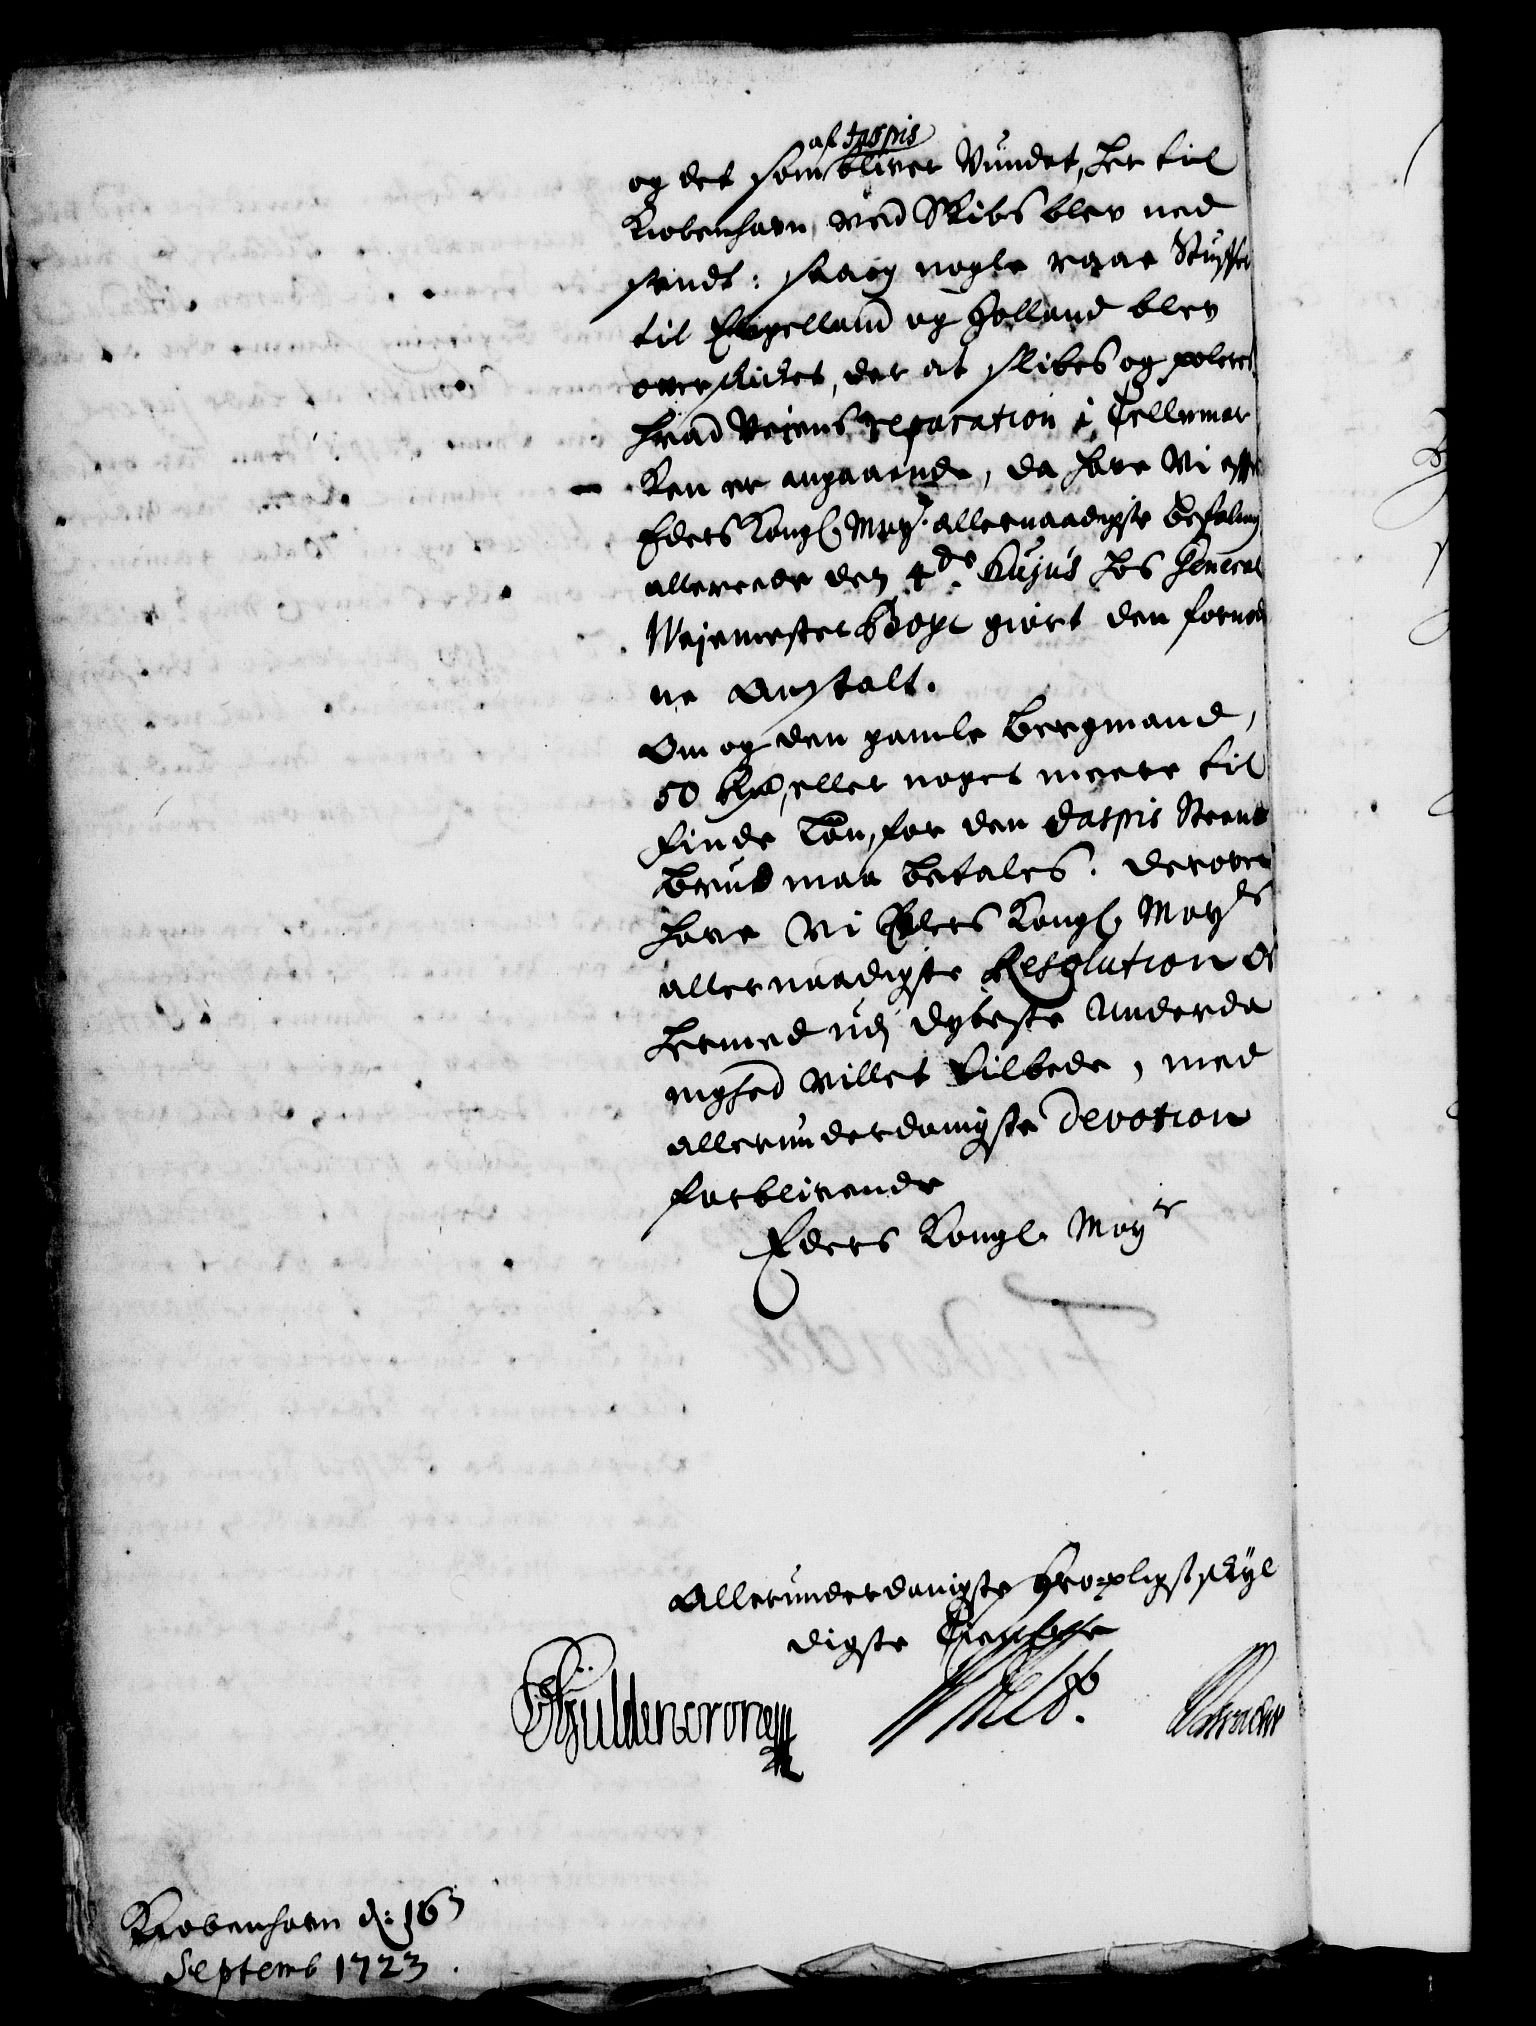 af Jaspis
og det som bliver Vundet, her til
Kiøbenhavn, med Skibs blev ned
sendt: saa og nogle raae Stycher
til Engelland og Holland blev
over skiket, der at slibes og poleres
hvad Veiens reparation i Tellemar
ken er angaaende, da have Vi effter
Eders Kongl. Mayts. allernaadigste befaling
allereede den 4de. hujus hos General
Vejemester giort den fornød
ne Anstalt.
Om og den gamle Bergmand,
50 Rd, eller noget meere til
finde Løn, for den Jaspis Steens
brud maa betales. derover
have Vi Eders Kongl. Mayts
allernaadigste Resolution
hermed udj dybeste Underda
nighed Villet tilbede, med
allerunderdanigste Devotion
forblivende
Eders Kongl. Mayts
Allerunderdanigste pligt skyl
digste Tienere
Güldencrone
Kiøbenhavn d: 16
Septemb 1723.